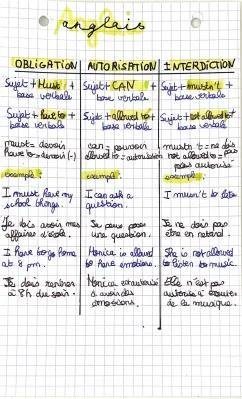 anglais
OBLIGATION
Sujet + Must +
base verbale
Sujet + have to +
base verbale
must = devoir
have to = devoir (-)
exemple :
I must have my
school things.
Je dois avoir mes
affaires d'école.
I have to go home
at 8 pm.
Je dois rentrer
à 8h du soir.
AUTORISATION
Sujet + CAN +
base verbale
Sujet + allowed to +
base verbale
can = pouvoir
allowed to = autorisation
exemple :
I can ask a
question.
Je peux poser
une question.
Monica is allowed
to have emotions.
Monica est autorisé
à avoir des
émotions.
INTERDICTION
Sujet + mustn't +
base verbale
Sujet + not allowed to +
base verbale
mustn't = ne dois
not allowed to = pas
autorisé
exemple :
I musn't to late
Je ne dois pas
être en retard.
She is not allowed
to listen to music.
Elle n'est pas
autorisée à écouter
de la musique.